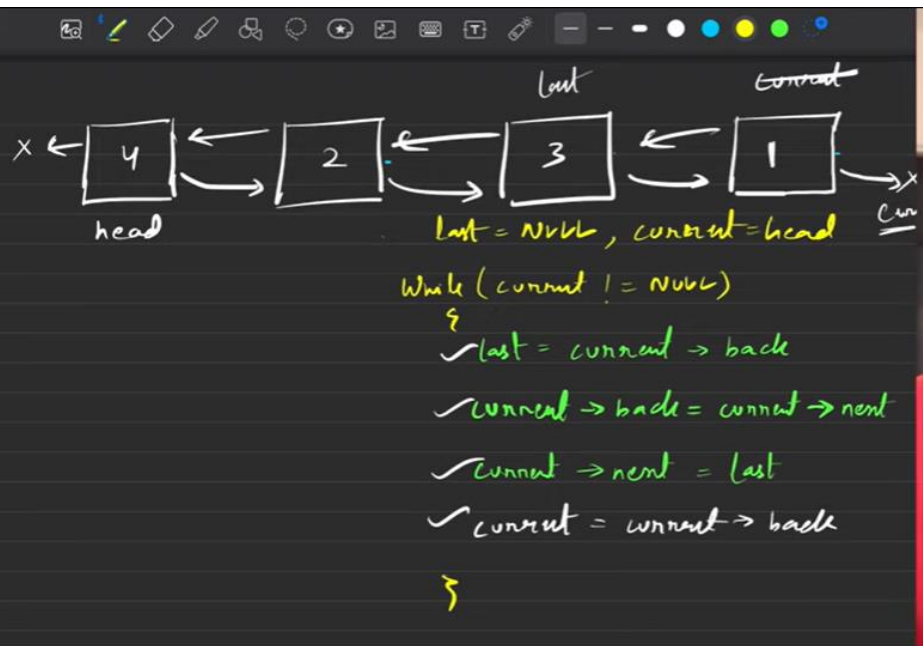 last current
X 4 2 3 1 X
head
last = NULL, current = head
While (current != NULL)
{
last = current → back
current → back = current → next
current → next = last
current = current → back
}